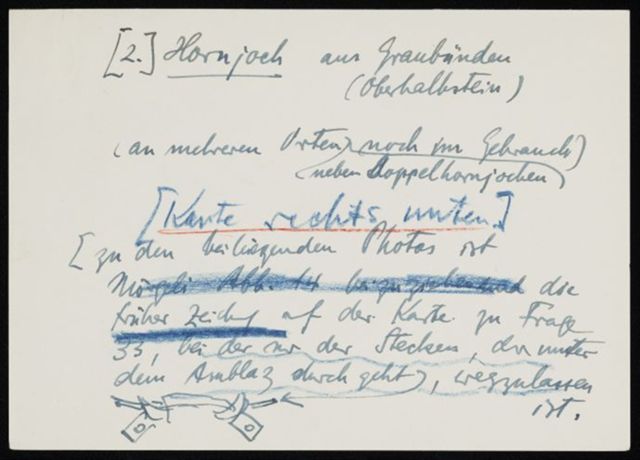 [2.] Hornjoch aus Graubünden
(Oberhalbstein)
(an mehreren Orten) noch im Gebrauch)
(neben Doppelhornjochen)
[Karte rechts unten.]
[zu den beiliegenden Photos ist
Mörgeli Abb. 14 beizuziehen und die
früher Zeichg auf der Karte zu Frage
33, bei der nur der Stecken, der unter
dem Amblaz durch geht), wegzulassen
ist.